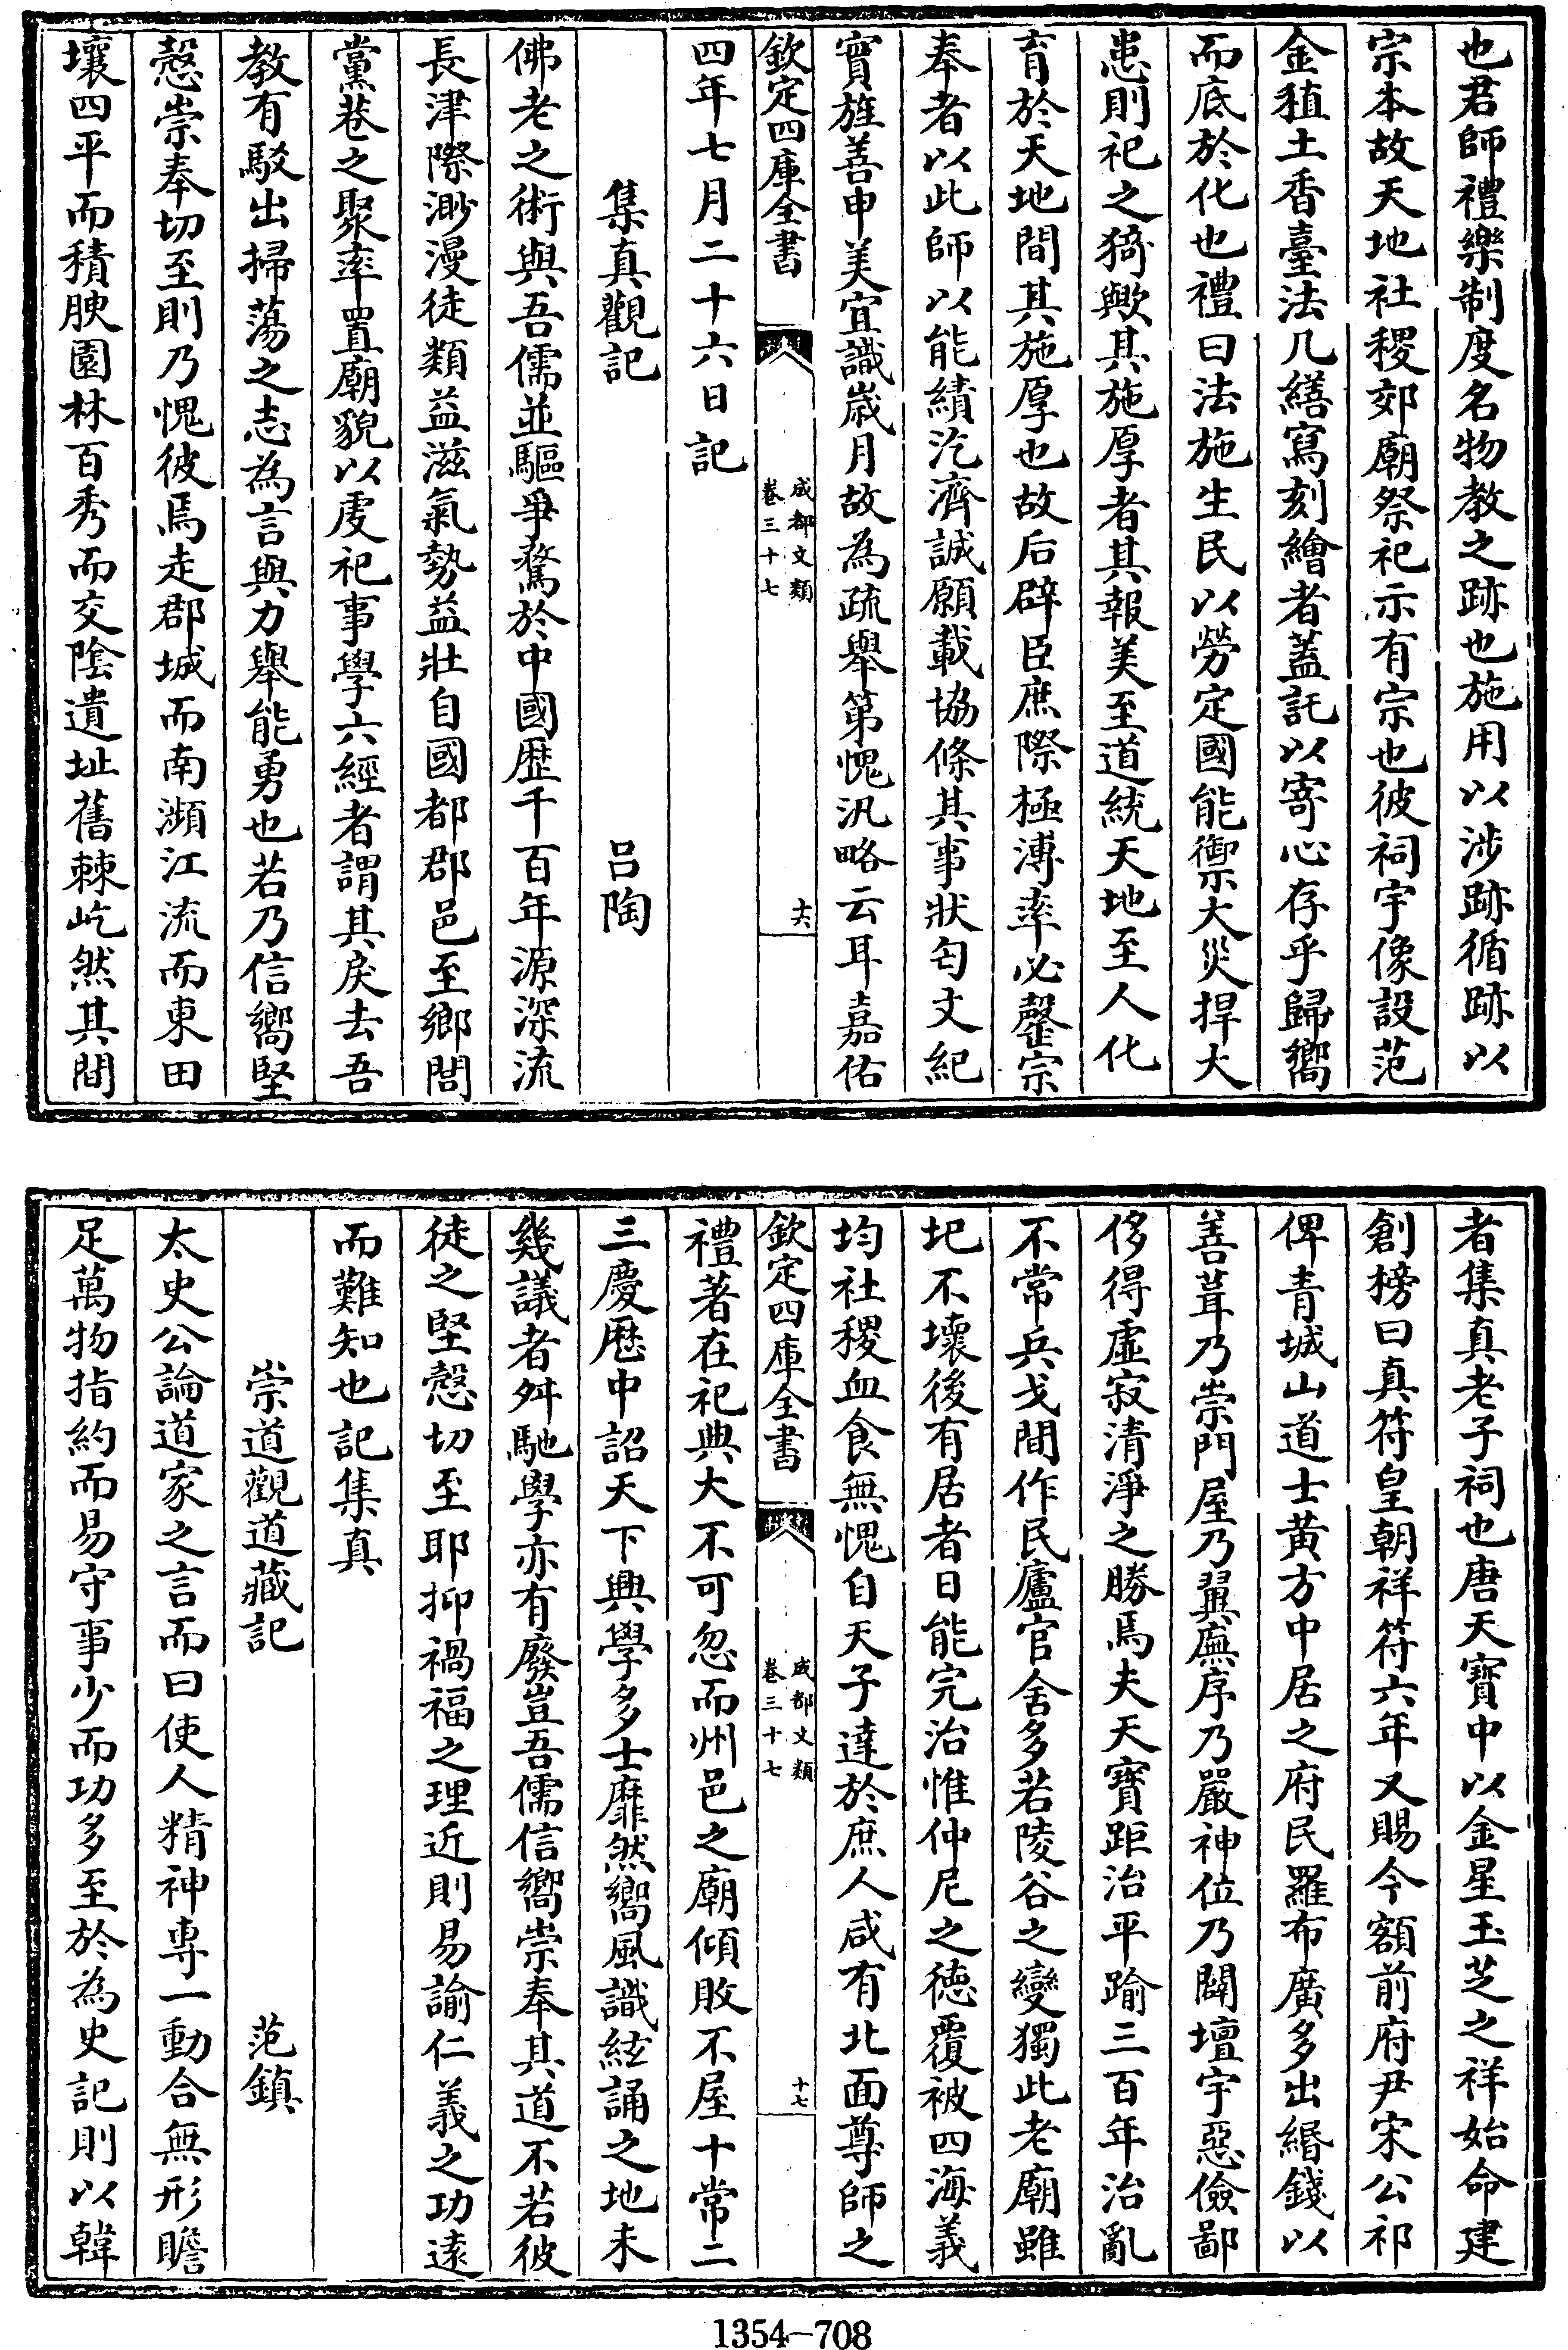 也君師禮樂制度名物教之跡也施用以涉跡循跡以
宗本故天地社稷郊廟祭祀示有宗也彼祠宇像設范
金植土香臺法几繕寫刻繪者蓋託以寄心存乎歸嚮
而底於化也禮曰法施生民以勞定國能禦大災捍大
患則祀之猗歟其施厚者其報美至道統天地至人化
育於天地間其施厚也故后辟臣庶際極溥率必罄宗
奉者以此師以能績汔濟誠願載協條其事狀匄文紀
實旌善申美宜識歲月故為疏舉第愧汎略云耳嘉佑
欽定四庫全書
成都文類
卷三十七
十六
四年七月二十六日記
集真觀記
呂陶
佛老之術與吾儒並驅爭騖於中國歷千百年源深流
長津際渺漫徒類益滋氣勢益壯自國都郡邑至鄉閭
黨巷之聚率置廟貌以虔祀事學六經者謂其戾去吾
教有駁出掃蕩之志為言與力舉能勇也若乃信嚮堅
慤崇奉切至則乃愧彼焉走郡城而南瀕江流而東田
壤四平而積腴園林百秀而交陰遺址舊棘屹然其間
者集真老子祠也唐天寶中以金星玉芝之祥始命建
創榜曰真符皇朝祥符六年又賜今額前府尹宋公祁
俾青城山道士黃方中居之府民羅布廣多出緡錢以
善葺乃崇門屋乃翼廡序乃嚴神位乃闢壇宇惡儉鄙
侈得虛寂清淨之勝焉夫天寶距治平踰三百年治亂
不常兵戈間作民廬官舍多若陵谷之變獨此老廟雖
圯不壞後有居者日能完治惟仲尼之德覆被四海義
均社稷血食無愧自天子達於庶人咸有北面尊師之
欽定四庫全書
成都文類
卷三十七
十七
禮著在祀典大不可忽而州邑之廟傾敗不屋十常二
三慶厯中詔天下興學多士靡然嚮風識絃誦之地未
幾議者舛馳學亦有廢豈吾儒信嚮崇奉其道不若彼
徒之堅慤切至耶抑禍福之理近則易諭仁義之功遠
而難知也記集真
崇道觀道藏記
范鎮
太史公論道家之言而曰使人精神専一動合無形贍
足萬物指約而易守事少而功多至於為史記則以韓
1354-708